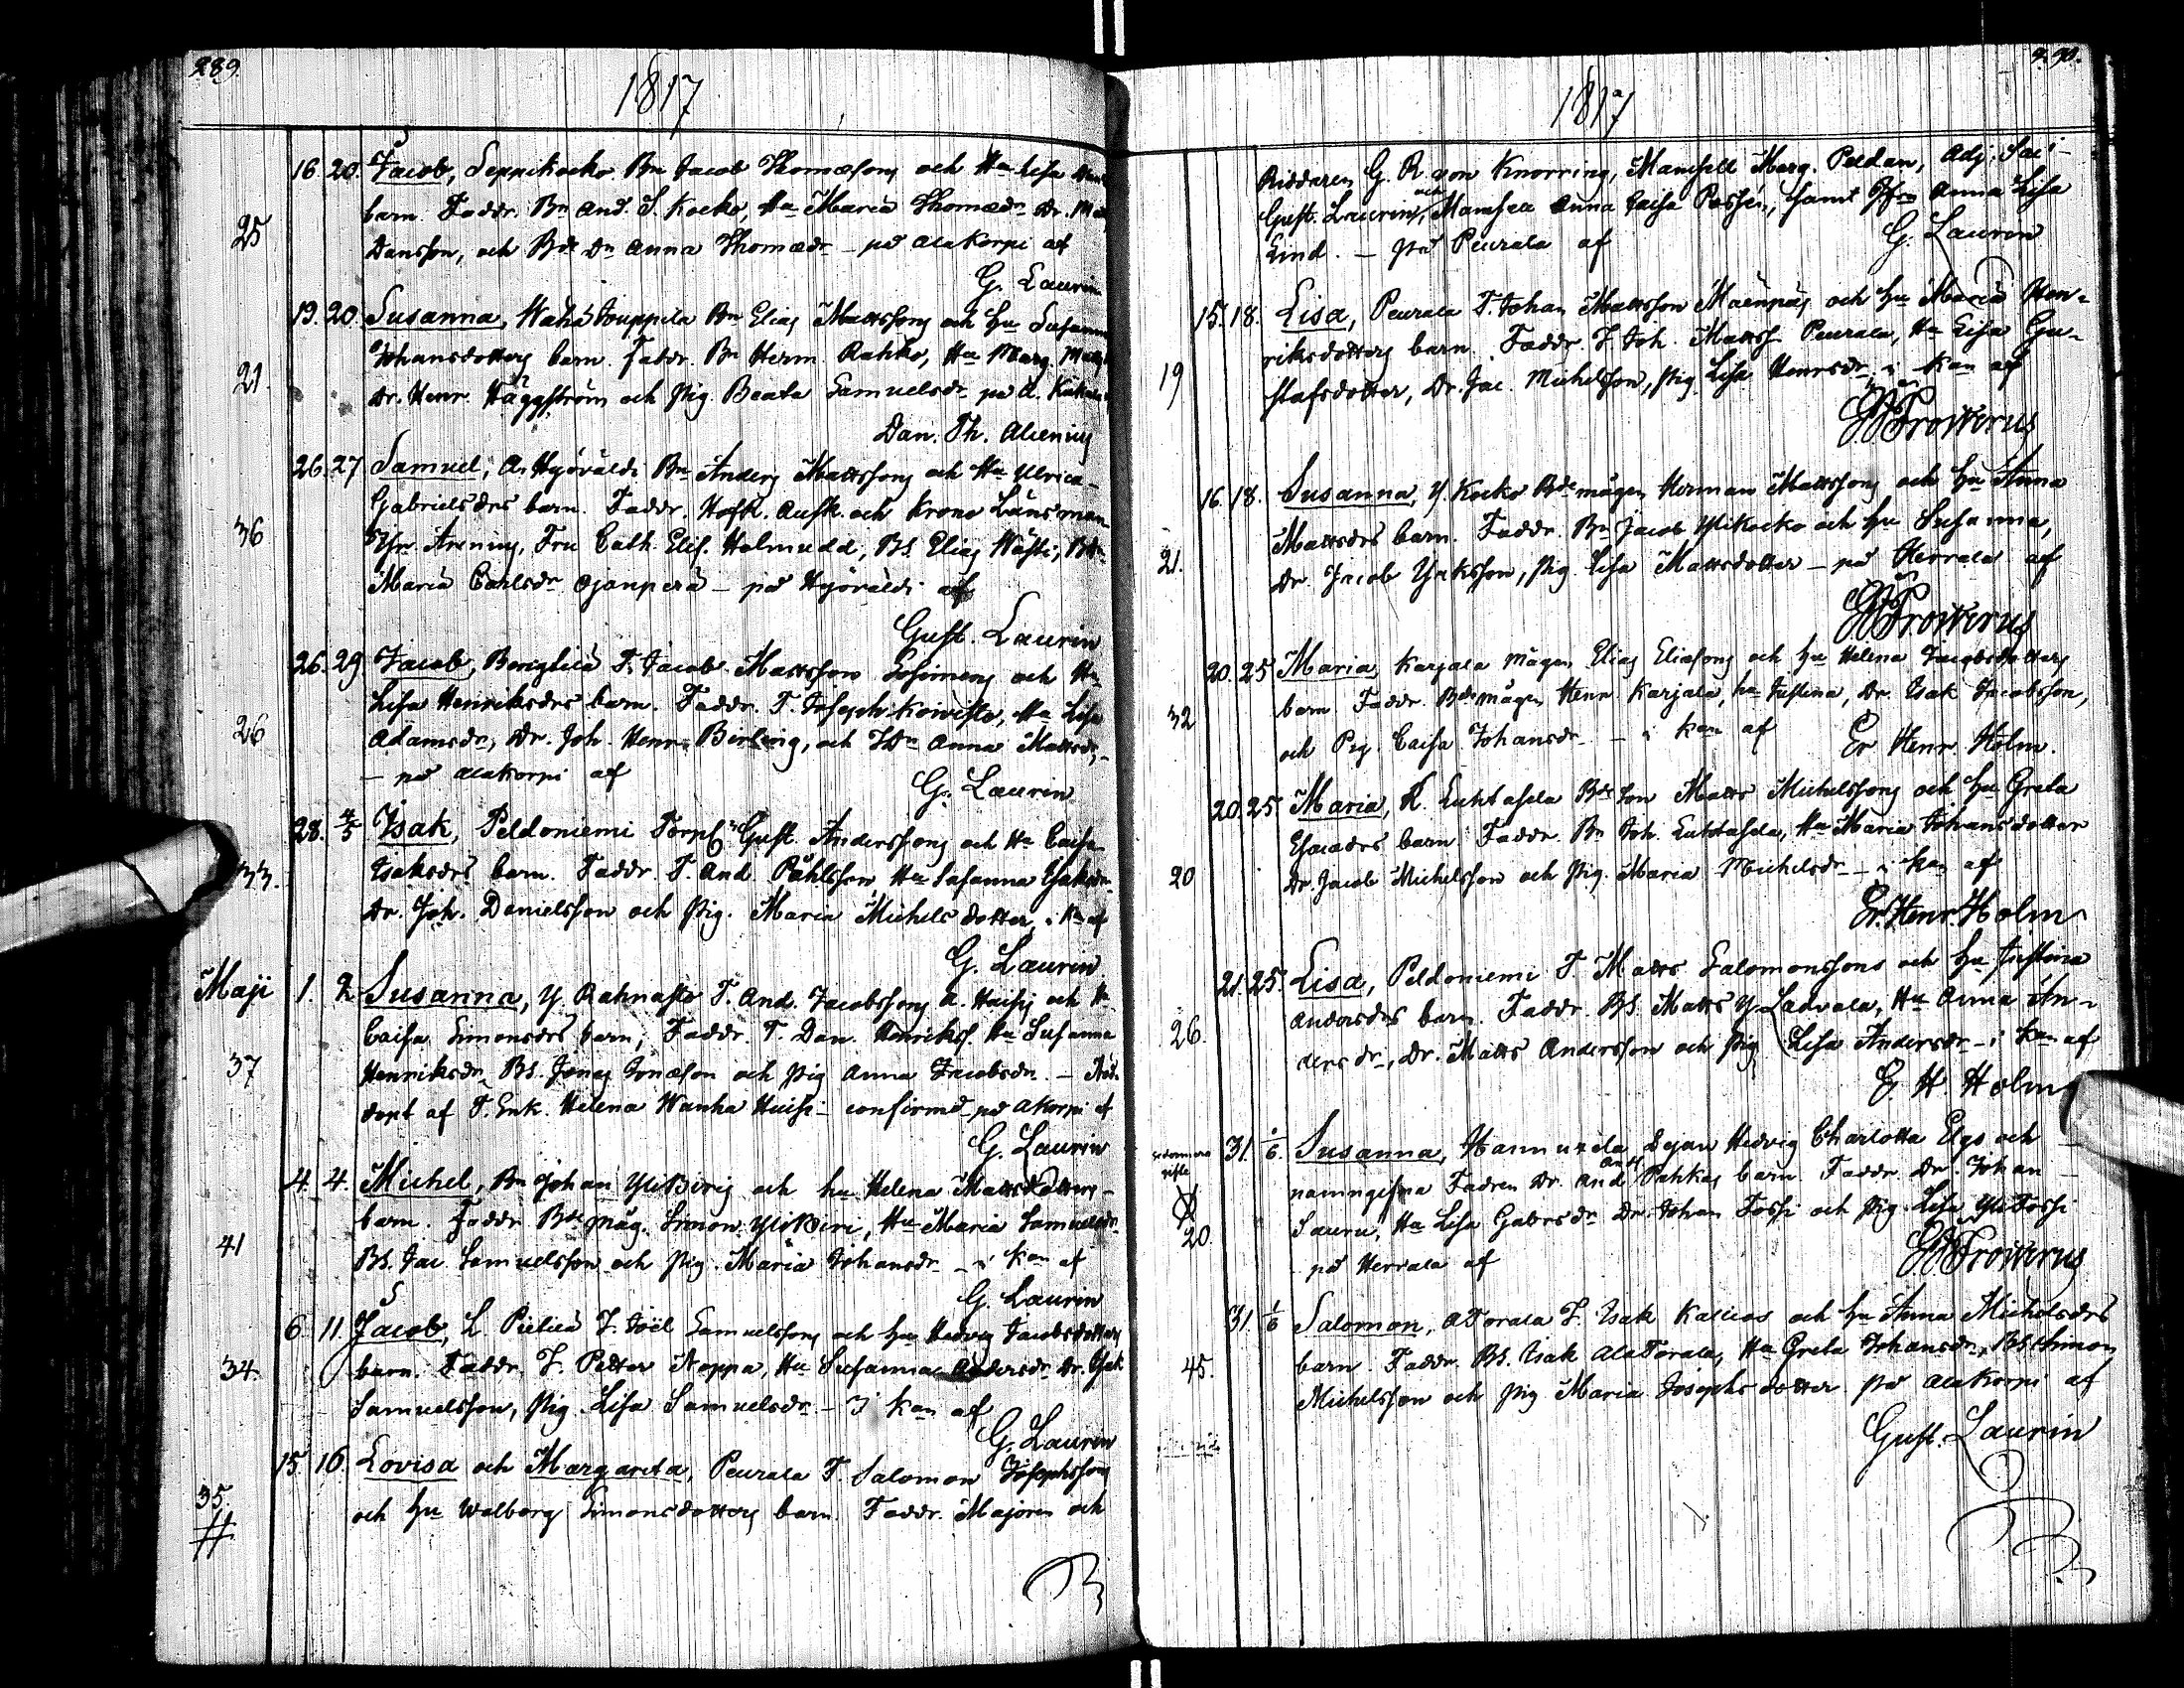 289.
1817
16. 20. Jacob, Seppikocko Bn Jacob Thomæsons och Hu Lisa
25 barn. Faddr. Bn And. S. Kocko, Hu Maria Thomædr Dr.
Dansson, och Bde Dr Anna Thomædr – på Alakorpi af
G. Laurin
19. 20. Susanna, Wähä Jouppila Bn Elias Mattssons och Hu Susanna
21. Johansdotters barn. Faddr. Bn Herm. Rahko, Hu Marg. Matts
Dr. Henr. Häggström och Pig. Beata Samuelsdr på A.
Dan. Th. Alcenius
26. 27 Samuel, A. Hyöväldi Bn Anders Mattssons och Hu Ulrica
Gabrielsdrs barn. Faddr. Hofr. Ausk. och Krono Länsman
36 Hr Arenius, Fru Cath. Elis. Holmudd, BS. Elias
Maria Carlsdr Ojanperä – på Hyöväldi af
Gust. Laurin
26. 29 Jacob, T. Jacob Mattsson och Hu
Lisa Henriksdrs barn. Faddr. T. Joseph Koivisto, Hu Lisa
26 Adamsdr, Dr. Joh. Henr. och TDr Anna Mattsdr,
– på Alakorpi af
G. Laurin
28. 4/5 Isak, Peldoniemi Torp. Gust. Anderssons och Hu Caisa
33. Isaksdrs barn. Faddr. T. And. Påhlsson, Hu Susanna Esaksdr
Dr. Joh. Danielsson och Pig. Maria Michelsdotter, i Kn af
G. Laurin
Maji 1. 2 Susanna, Y. Rahnasto T. And. Jacobssons A. Huisis och Hu
Caisa Simonsdrs barn, Faddr. T. Dan. Henrikss. Hu Susanna
37 Henriksdr, BS. Jonas Jonæson och Pig Anna Jacobsdr – Nöd-
döpt af T. Enk. Helena Wanha Huisi – confirmd på Akorpi af
G. Laurin
4. 4. Michel, Bn Johan YliBiris och hu Helena Mattsdotters
barn. Faddr. Bde måg. Simon YliBiri, Hu Maria Samuelsdr
41 BS. Jac Samuelsson och Pig. Maria Johansdr – i Kan af
G. Laurin
6. 11. Jacob, L. Pieliä T. Joël Samuelssons och hu Hedvig Jacobsdotters
34. barn. Faddr. T. Petter Noppa, Hu Susanna Andersdr Dr. Esak
Samuelsson, Pig. Lisa Samuelsdr – I Kan af
G. Laurin
15. 16. Lovisa och Margareta, Peurala T. Salomon Josephssons
35. och Hu Walborg Simonsdotters barn. Faddr. Majoren och
#
290.
1817
Riddaren G. R. von Knorring, Mamsell Marg. Peldan, Adj. Saci
Gust. Laurin, och Mamsell Anna Caisa samt Jfr Anna Lisa
Lind. – på Peurala af
G. Laurin
15. 18. Lisa, Peurala T. Johan Mattsson Mäenpäs och Hu Maria Hen-
riksdotters barn. Faddr. T. Joh. Mattss. Peurala, Hu Lisa Gu-
19 stafsdotter, Dr. Jac. Michelsson, Pig. Lisa Henrsdr i Kan af
Frosterus
16. 18. Susanna, Y. Kocko Bde mågen Herman Mattssons och Hu Anna
Mattsdrs barn. Faddr. Bn Jacob Ylikocko och hu Susanna,
21. Dr. Jacob Pig. Lisa Mattsdotter – på Herrala af
Frosterus
20. 25 Maria, Karjala Mågen Elias Eliæsons och hu Helena Jacobsdotters
32 barn. Faddr. Bde mågen Henr. Karjala, hu Justina, Dr. Isak Jacobsson,
och Pig. Caisa Johansdr – i Kan af
Er. Henr. Holm.
20. 25. Maria, R. Luhtasela Bde Son Matts Michelssons och hu Greta
Esaiædrs barn. Faddr. Bn Joh. Luhtasela, Hu Maria Johansdotter
20 Dr. Jacob Michelsson och Pig. Maria Michelsdr – i Kan af
Er. Henr. Holm
21. 25. Lisa, Peldoniemi T. Matts Salomonssons och Hu Justina
Andersdrs barn. Faddr. BS. Matts Y. Ladvala, Hu Anna An-
26. dersdr, Dr. Matts Andersson och Pig Lisa Andersdr – i Kan af
E. H. Holm
31. 1/6. Susanna, Hannuxela Dejan Hedvig Charlotta Elgs och
namngifna Fadren Dr. And Pahkas barn. Faddr. Dr. Johan
20. Sauru, Hu Lisa Dr. Johan Tossi och Pig. Lisa YliTossi
på Herrala af
Frosterus
31. 1/6 Salomon, ATorala T. Isak Kallios och hu Anna Michelsdrs
45. barn. Faddr. BS. Isak AlaTorala, Hu Greta Johansdr, BS. Simon
Michelsson och Pig Maria Josephsdotter på Alakorpi af
Gust. Laurin